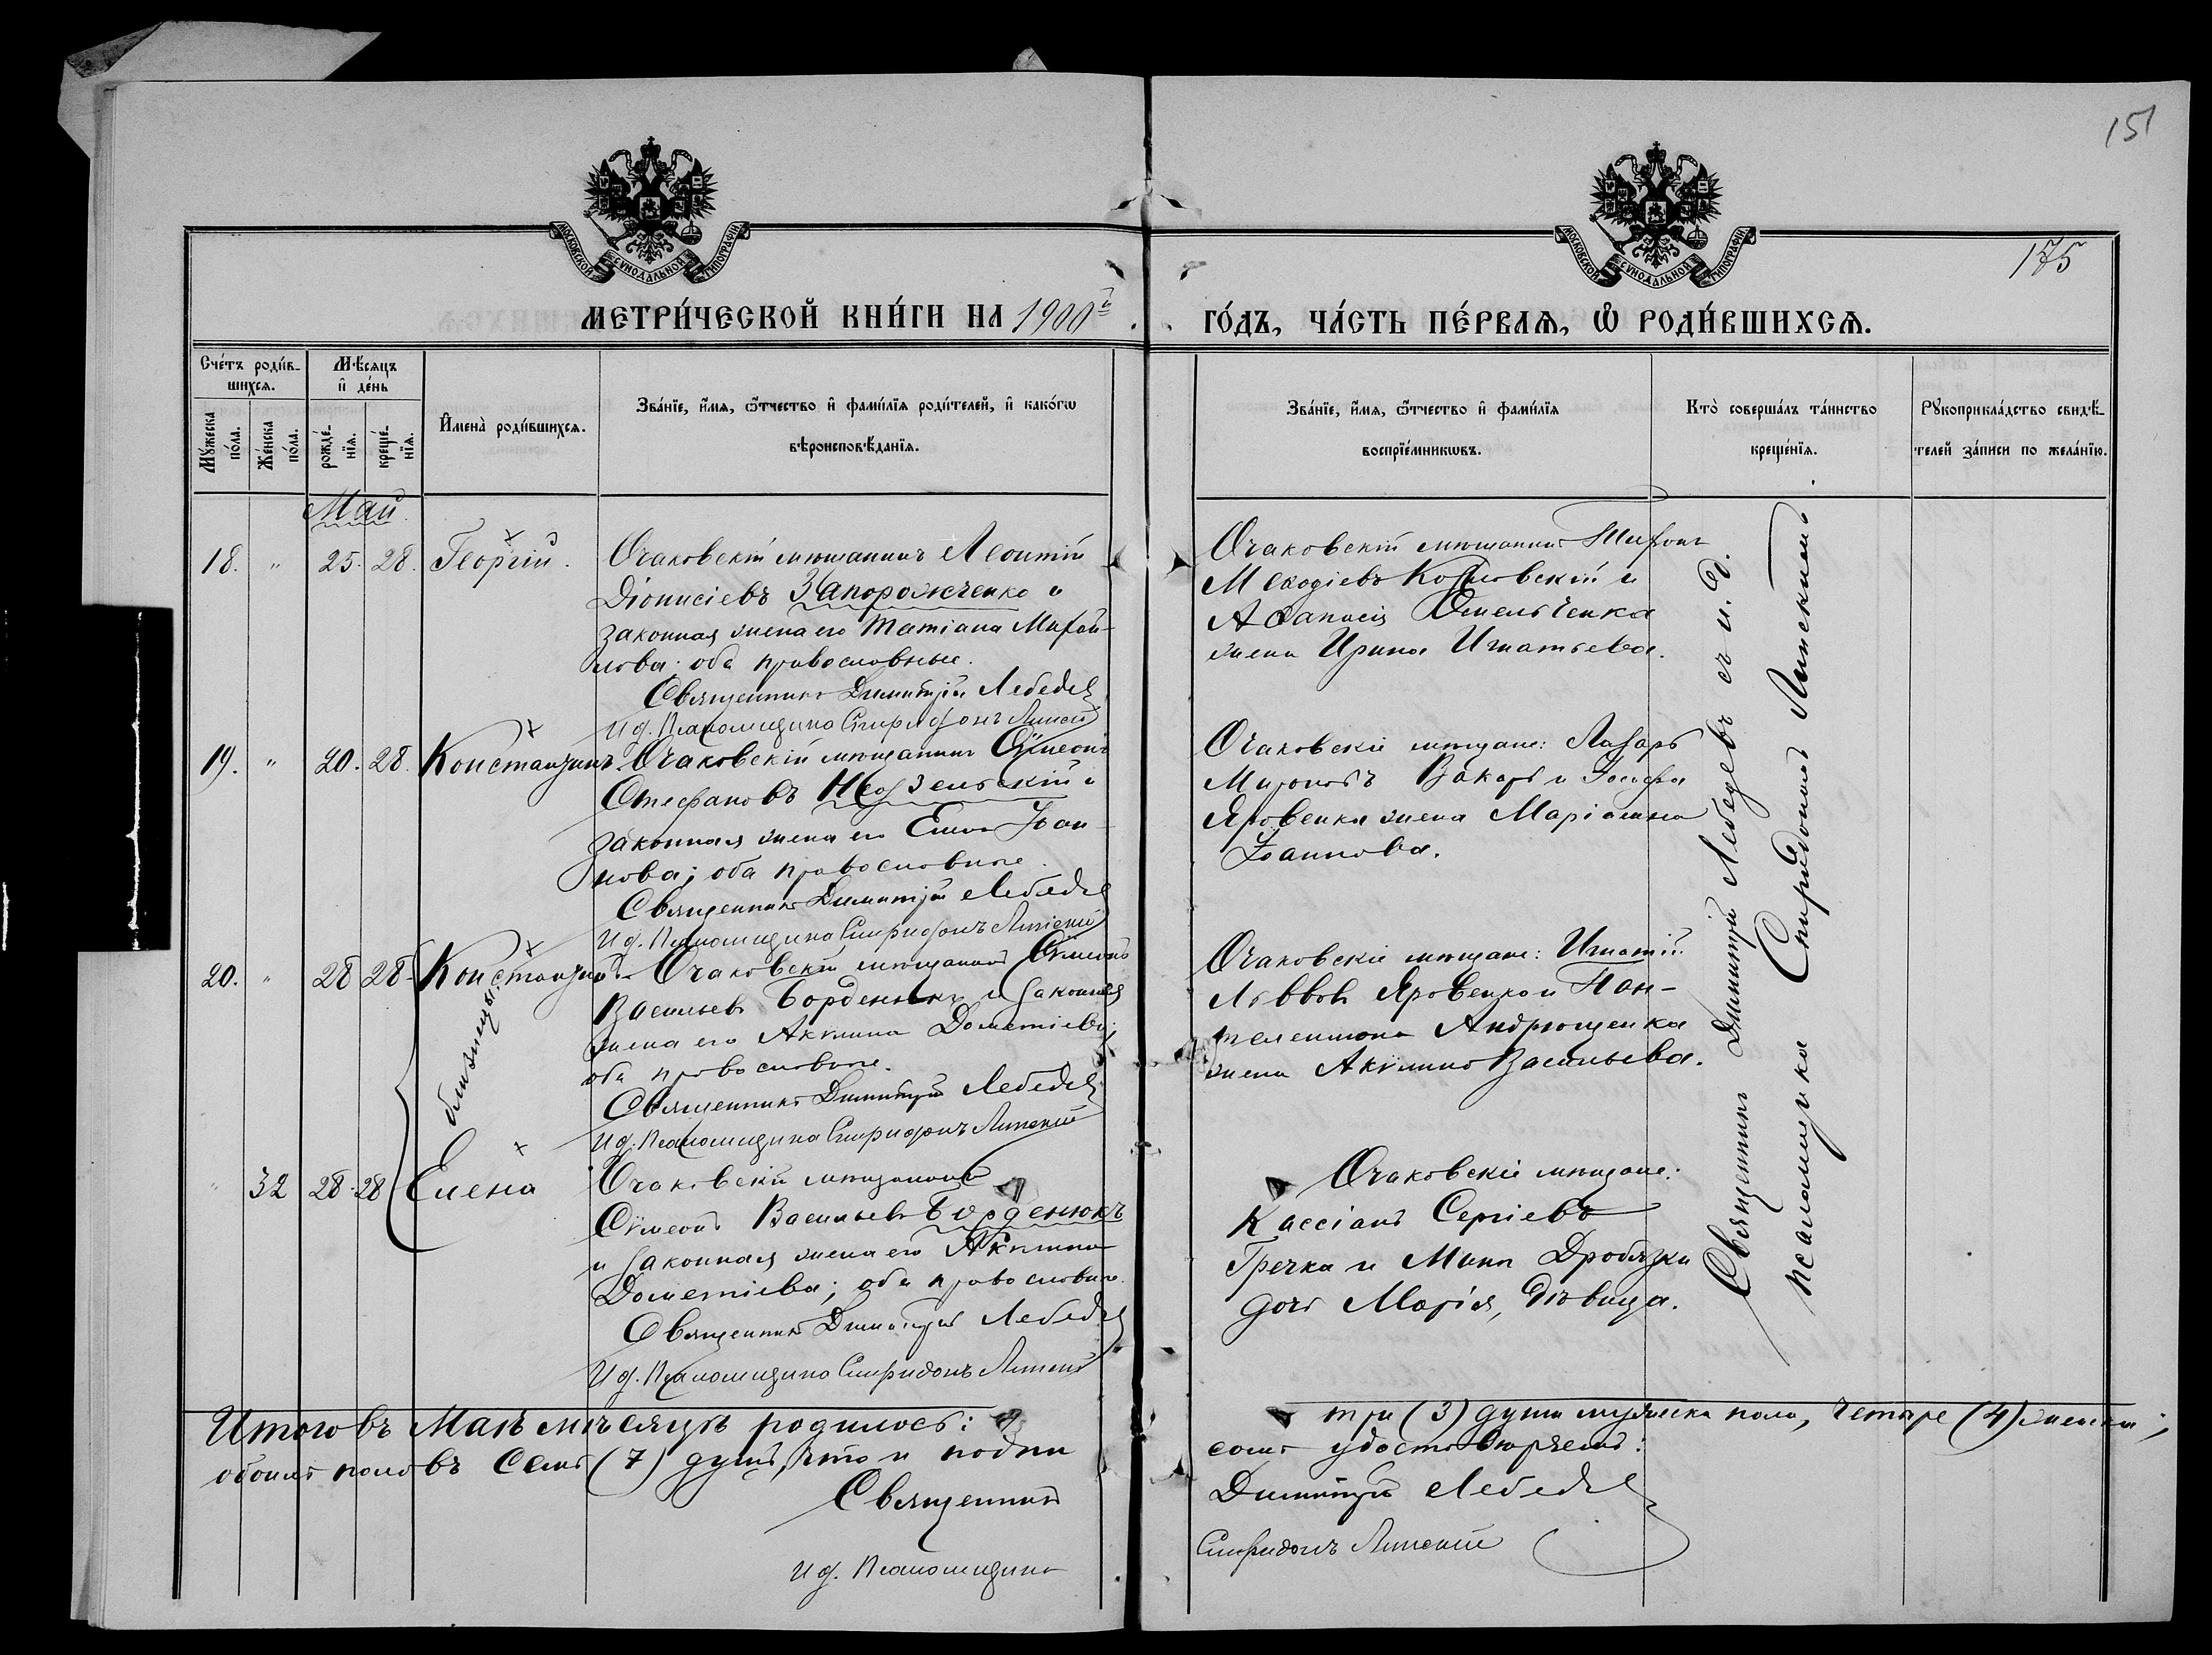 151
175
МОСКОВСКОЙ СѴНОДАЛЬНОЙ ТИПОГРАФІИ
МОСКОВСКОЙ СѴНОДАЛЬНОЙ ТИПОГРАФІИ
МЕТРИ́ЧЕСКОЙ КНИ́ГИ НА 1900й
ГО́ДЪ, ЧА́СТЬ ПЕ́РВАЯ, Ѡ҆ РОДИ́ВШИХСѦ.
Сче́тъ роди́в-
шихсѧ.
Мꙋ́жеска по́ла.
Же́нска по́ла.
Мѣ́сѧцъ
и҆ де́нь
рожде́-
нїѧ.
креще́-
нїѧ.
И҆мена̀ роди́вшихсѧ.
Зва́нїе, и҆́мѧ, ѻ҆́тчество и҆ фами́лїѧ роди́телей, и҆ како́гѡ
вѣроисповѣ́данїѧ.
Зва́нїе, и҆́мѧ, ѻ҆́тчество и҆ фами́лїѧ
воспрїе́мникѡвъ.
Кто̀ соверша́лъ та́инство
креще́нїѧ.
Рꙋкоприкла́дство свидѣ́-
телей за́писи по жела́нїю.
Май
18. " 25. 28. Георгій.
Очаковскій мѣщанинъ Леонтій
Діонисіевъ Запорожченко и
законная жена его Татіана Михай-
лова; оба православные.
Священникъ Димитрій Лебедевъ
И д. Псаломщика Спиридонъ Липскій
Очаковскій мѣщанинъ
Меѳодіевъ Козловскій и
Аѳанасія Омельченка
жена Ирина Игнатьева.
19. " 20. 28. Константинъ.
Очаковскій мѣщанинъ Сѵмеонъ
Стефановъ
законная жена его Елена Іоан-
нова; оба православные.
Священникъ Димитрій Лебедевъ
И д. Псаломщика Спиридонъ Липскій
Очаковскіе мѣщане: Лазарь
Мироновъ Вакарь и Іосифа
Яровенка жена Маріамна
Іоаннова.
20. " 28 28 Константинъ
близнецы.
Очаковскій мѣщанинъ Сѵмеонъ
Васильевъ Борденюкъ и законная
жена его Акилина Дометіева;
оба православные.
Священникъ Димитрій Лебедевъ
И д. Псаломщика Спиридонъ Липскій
Очаковскіе мѣщане: Игнатій
Львовъ Яровенко и Пан-
телеимона Андрющенка
жена Акилина Васильева.
" 32 28 28 Елена
Очаковскій мѣщанинъ
Сѵмеонъ Васильевъ Борденюкъ
и законная жена его Акилина
Дометіева; оба православные.
Священникъ Димитрій Лебедевъ
И д. Псаломщика Спиридонъ Липскій
Очаковскіе мѣщане:
Кассіанъ Сергіевъ
Гречка и Мины Дробязки
дочь Марія, дѣвица.
Священникъ Димитрій Лебедевъ съ и. д.
псаломщика Спиридономъ Липскимъ.
Итого въ Маѣ мѣсяцѣ родилось:
три (3) души мужеска пола, четыре (4) женска;
обоихъ половъ семь (7) душъ, что и подпи
сомъ удостовѣряемъ:
Священникъ
Димитрій Лебедевъ
И д. Псаломщика
Спиридонъ Липскій